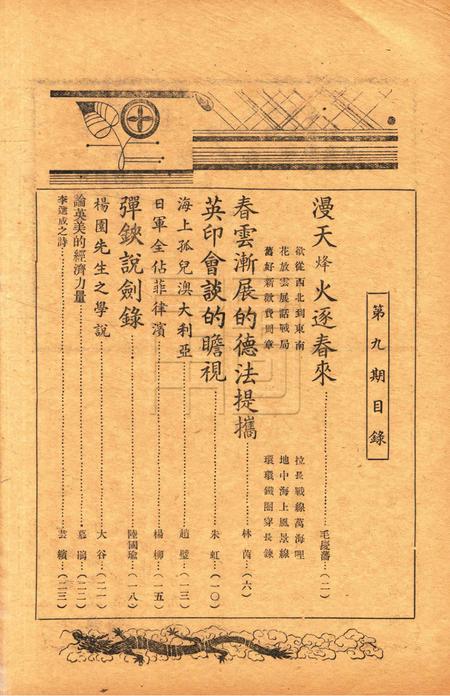 第九期目錄
漫天烽火逐春來……毛憂蕩…(二)
欲從西北到東南 拉長戰線萬海哩
花放雲展話戰局 地中海上風景線
舊好新歡費周章 環環鐵圈穿長鍊
春雲漸展的德法提攜……林茵…(六)
英印會談的瞻視……朱虹…(一〇)
海上孤兒澳大利亞……趙璧…(一三)
日軍全佔菲律濱……楊柳…(一五)
彈鋏說劍錄……陸國瑜…(一八)
楊園先生之學說……大谷…(二一)
論英美的經濟力量……慕鵑…(二二)
李蓮成之詩……芸繽…(二三)